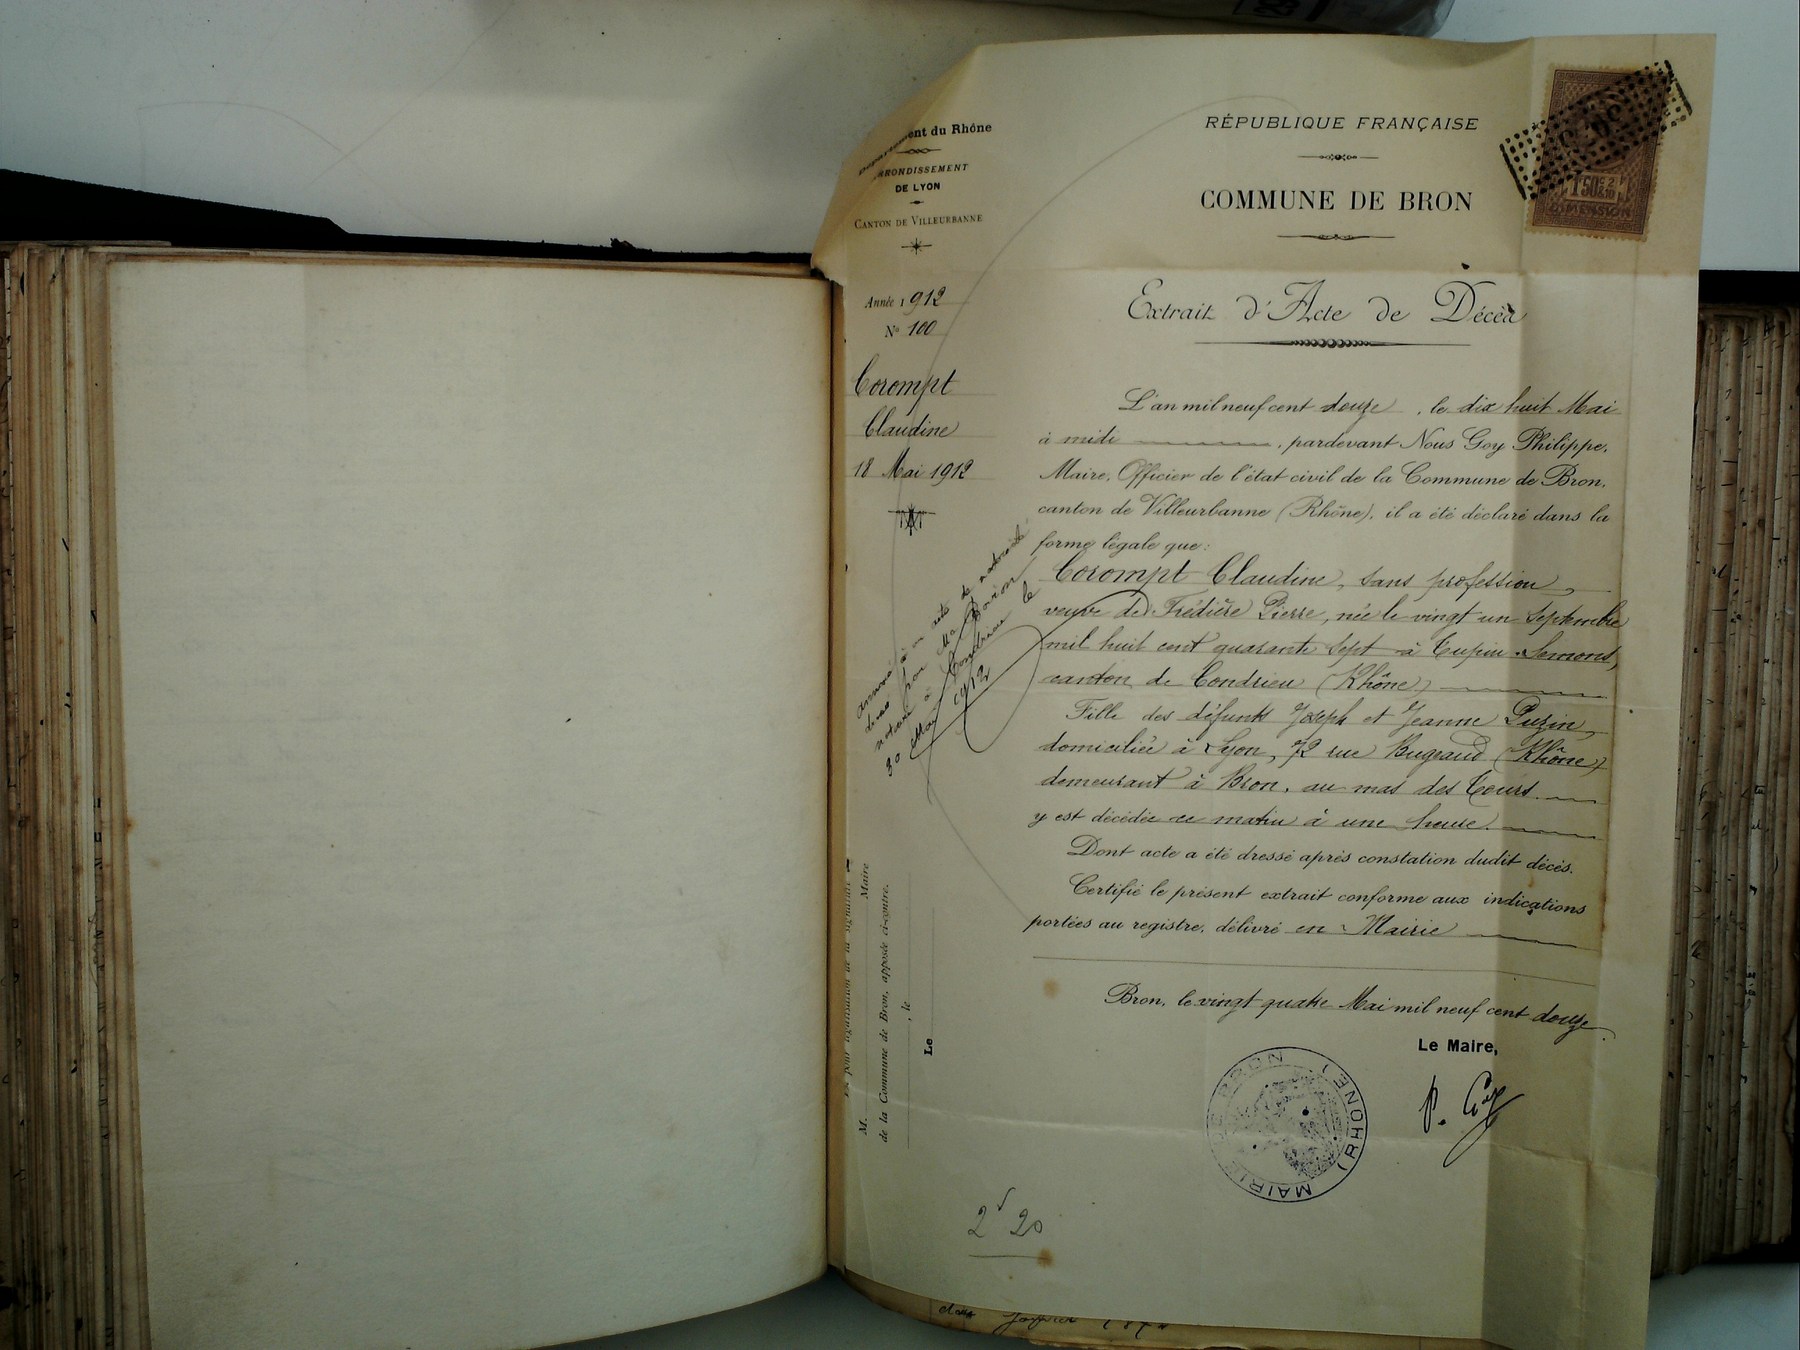 Département du Rhône
ARRONDISSEMENT
DE LYON
CANTON DE VILLEURBANNE
Année 1912
N° 100
Corompt
Claudine
18 Mai 1912
annexé à un acte de notoriété
dressé par Me
notaire à Condrieu le
30 Mai 1912
M. Maire
de la Commune de Bron, apposée ci-contre.
, le
Le
RÉPUBLIQUE FRANÇAISE
COMMUNE DE BRON
1F50c 2
DIMENSION
Extrait d'Acte de Décès
L'an mil neuf cent douze, le dix huit Mai
à midi, pardevant Nous Goy Philippe,
Maire, Officier de l'état civil de la Commune de Bron,
canton de Villeurbanne (Rhône), il a été déclaré dans la
forme légale que:
Corompt Claudine, sans profession,
veuve de Frédière Pierre, née le vingt un septembre
mil huit cent quarante sept à Tupin Semons,
canton de Condrieu (Rhône)
Fille des défunts Joseph et Jeanne Puzin,
domiciliée à Lyon, 72 rue Bugeaud (Rhône)
demeurant à Bron, au mas des Tours.
y est décédée ce matin à une heure.
Dont acte a été dressé après constation dudit décès.
Certifié le présent extrait conforme aux indications
portées au registre, délivré en Mairie
Bron, le vingt quatre Mai mil neuf cent douze
Le Maire,
P. Goy
MAIRIE DE BRON (RHONE)
2f 20